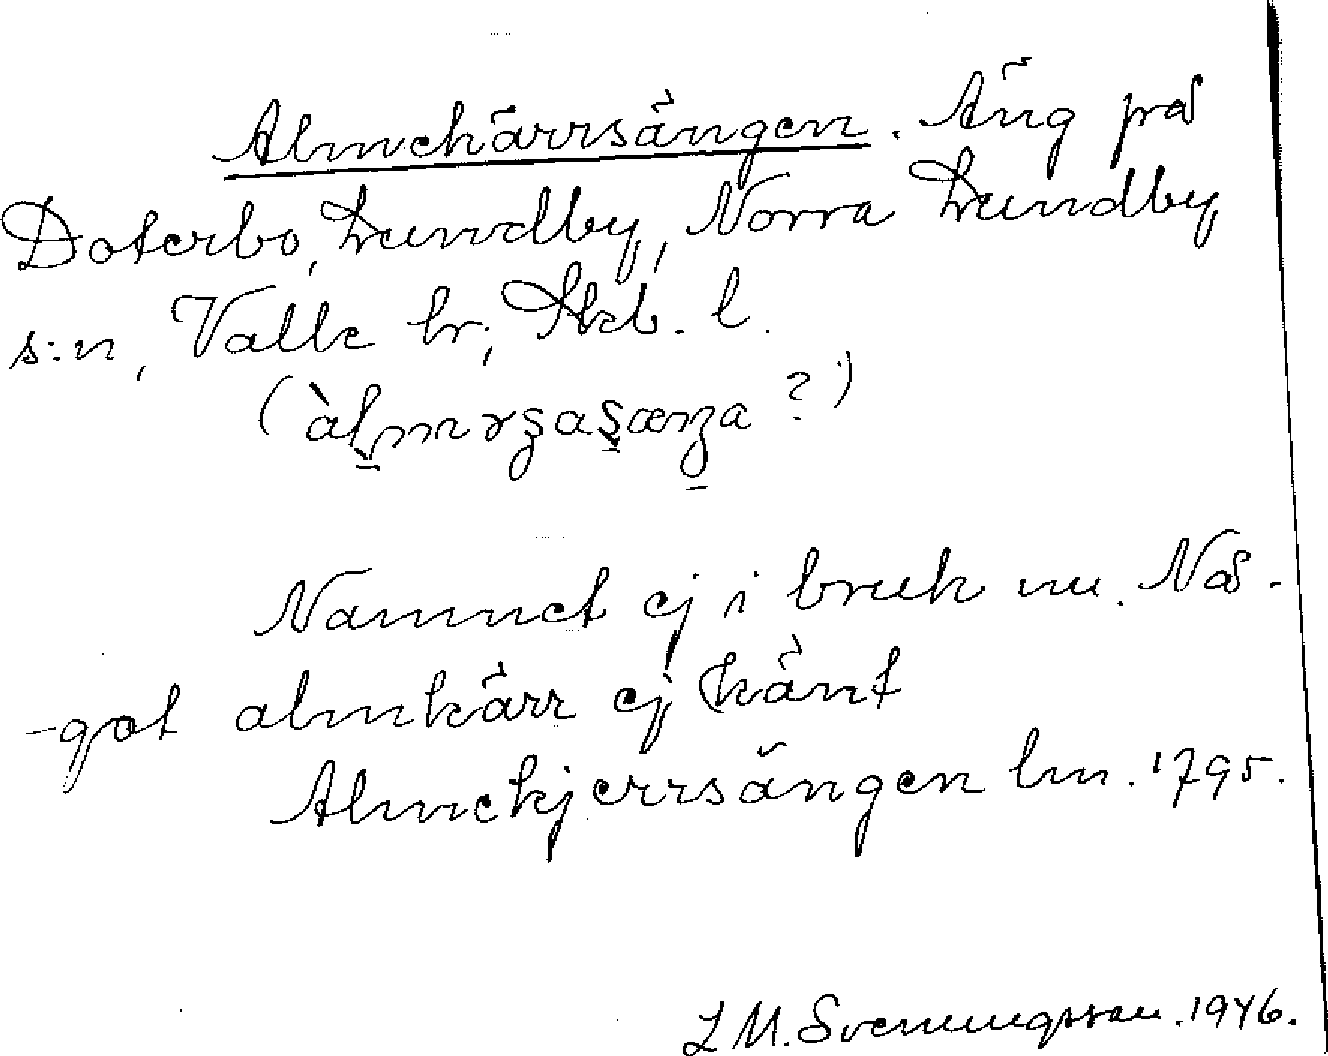 Almekärrsängen. Äng på
Doterbo, Lundby, Norra Lundby
s:n, Valle hr; Skb. l.
( ?)
Namnet ej i bruk nu. Nå-
-got almkärr ej känt
Almekjerrsängen lm. 1795.
L M. Svenungsson. 1946.